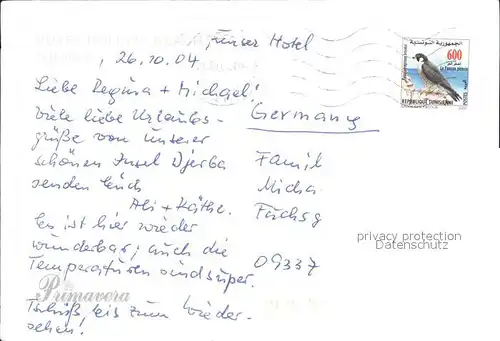 unser Hotel
, 26.10.04.
Liebe Regina + Michael!
viele liebe Urlaubs-
grüße von unserer
schönen Insel Djerba
senden Euch
Ali + Käthe.
Es ist hier wieder
wunderbar; auch die
Temperaturen sind super.
Tschüß, bis zum Wieder-
sehen!
Germany
Famil
Micha
Fuchsg
09337
الجمهورية التونسية
600
Le Faucon pèlerin
REPUBLIQUE TUNISIENNE
privacy protection
Datenschutz
Primavera